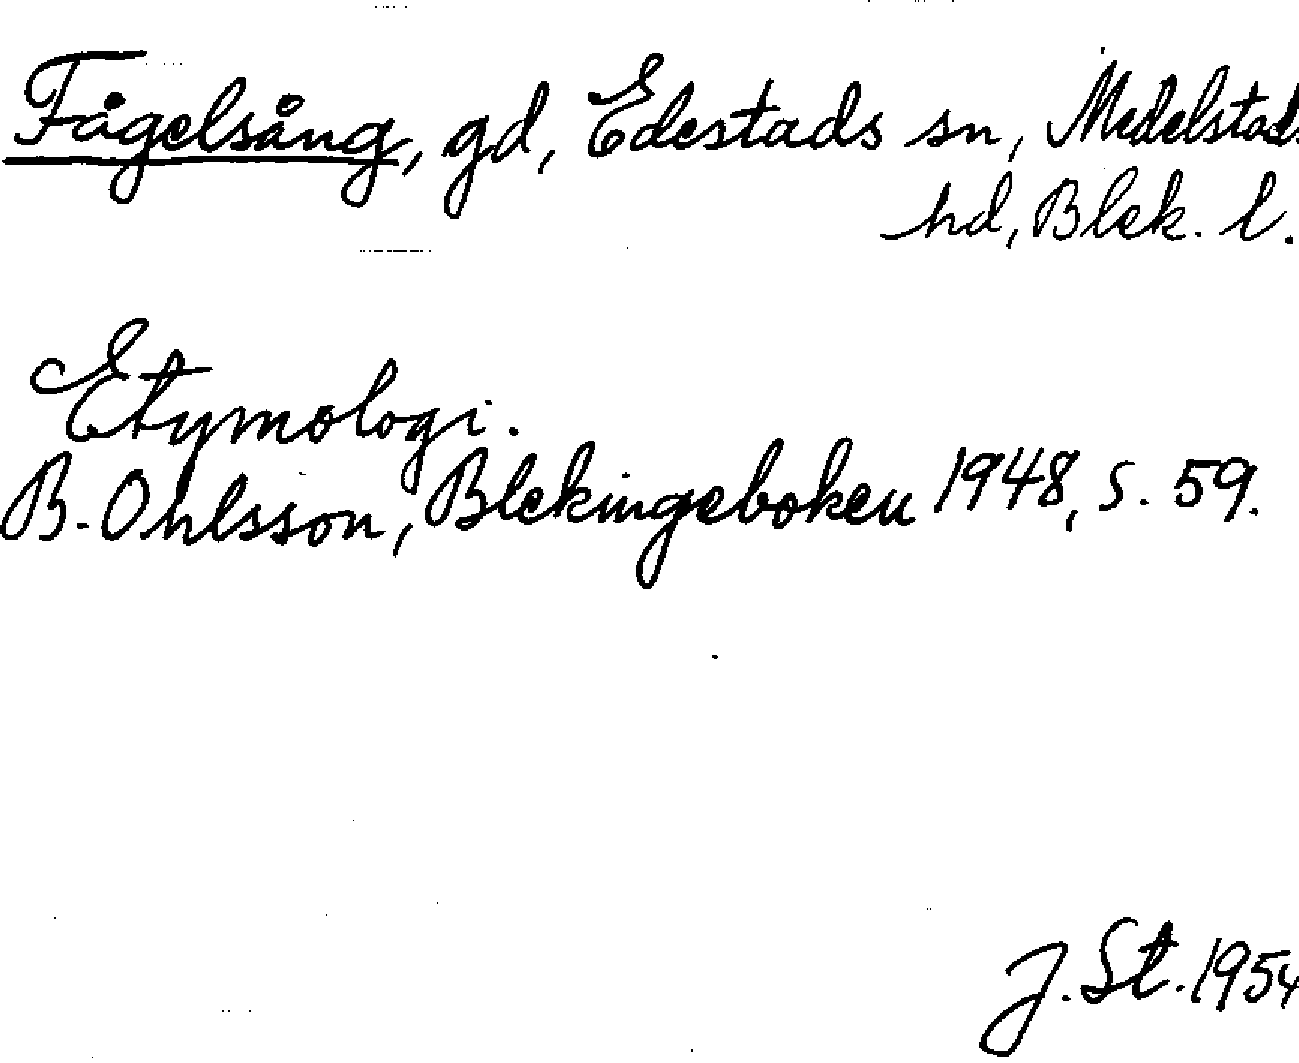 Fågelsång, gd, Edestads sn, Medelstads
hd, Blek. l.
Etymologi.
B. Ohlsson, Blekingeboken 1948, s. 59.
J. St. 1954